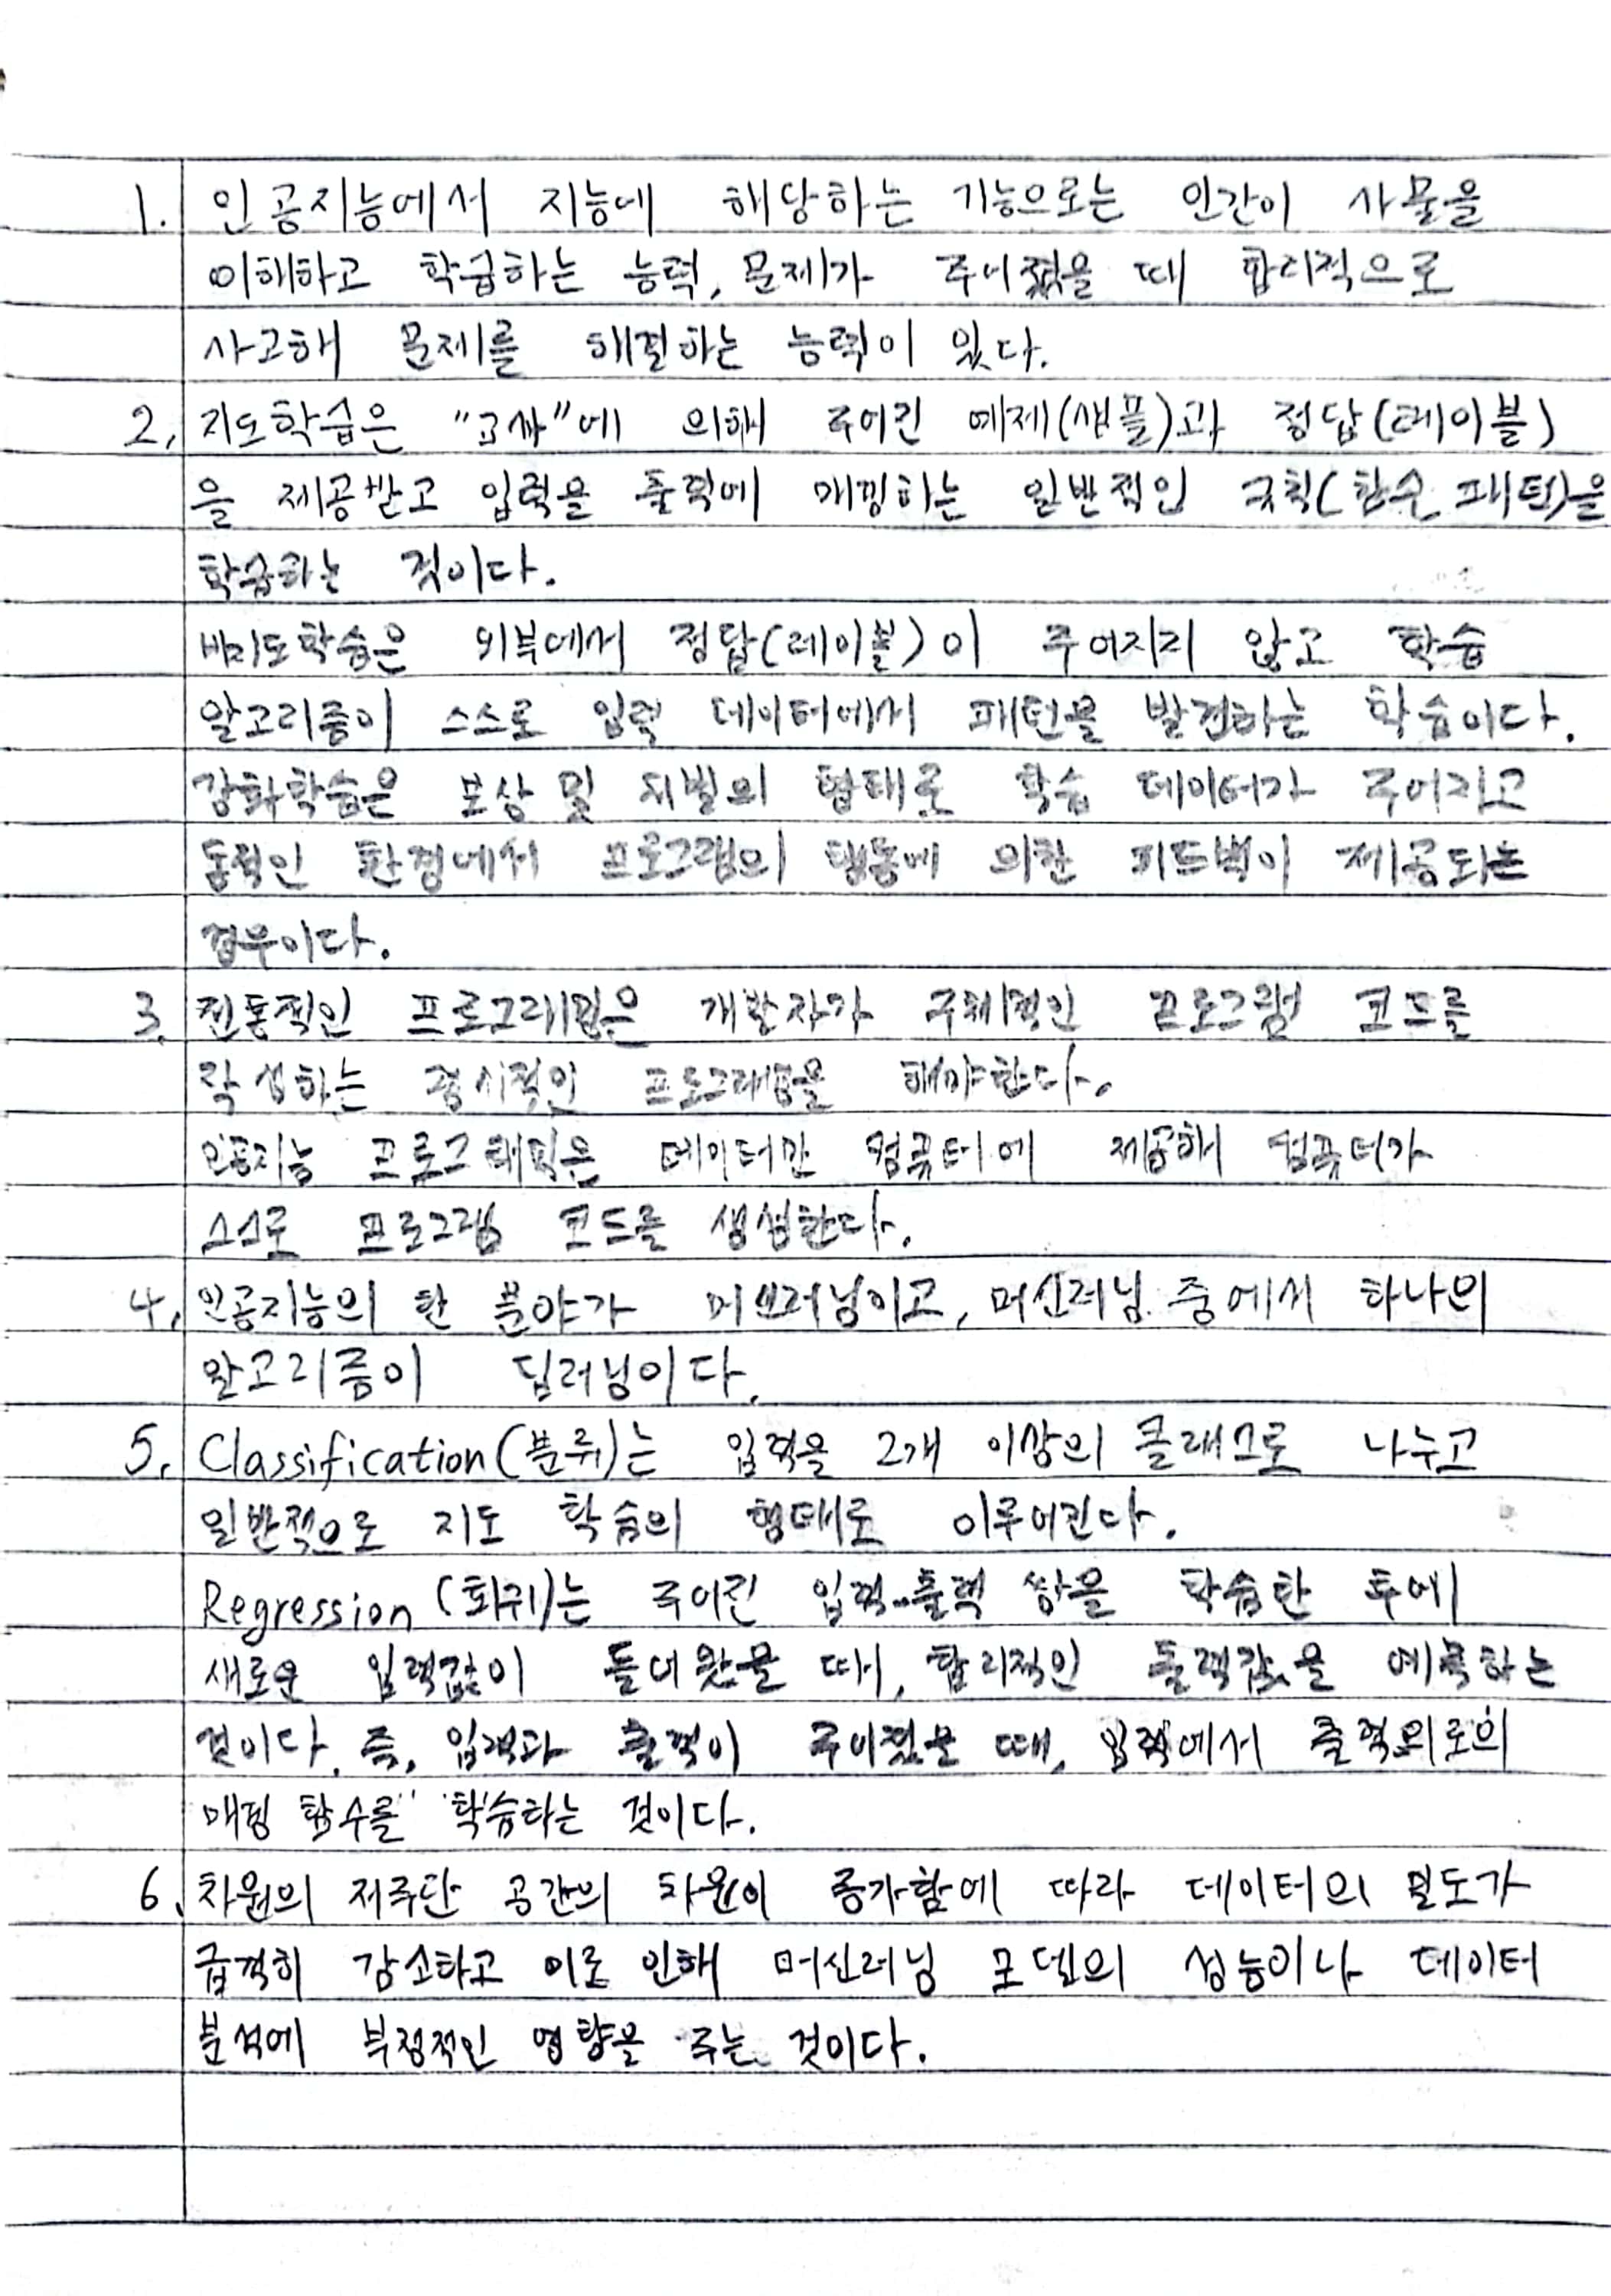 1. 인공지능에서 지능에 해당하는 기능으로는 인간이 사물을
이해하고 학습하는 능력, 문제가 주어졌을 때 합리적으로
사고해 문제를 해결하는 능력이 있다.
2. 지도학습은 "교사"에 의해 주어진 예제(샘플)과 정답(레이블)
을 제공받고 입력을 출력에 매핑하는 일반적인 규칙(함수, 패턴)을
학습하는 것이다.
비지도학습은 외부에서 정답(레이블)이 주어지지 않고 학습
알고리즘이 스스로 입력 데이터에서 패턴을 발견하는 학습이다.
강화학습은 보상 및 처벌의 형태로 학습 데이터가 주어지고
동적인 환경에서 프로그램의 행동에 의한 피드백이 제공되는
경우이다.
3. 전통적인 프로그래밍은 개발자가 구체적인 프로그램 코드를
작성하는 명시적인 프로그래밍을 해야한다.
인공지능 프로그래밍은 데이터만 컴퓨터에 제공해 컴퓨터가
스스로 프로그램 코드를 생성한다.
4. 인공지능의 한 분야가 머신러닝이고, 머신러닝 중에서 하나의
알고리즘이 딥러닝이다.
5. Classification(분류)는 입력을 2개 이상의 클래스로 나누고
일반적으로 지도 학습의 형태로 이루어진다.
Regression (회귀)는 주어진 입력-출력 쌍을 학습한 후에
새로운 입력값이 들어왔을 때, 합리적인 출력값을 예측하는
것이다. 즉, 입력과 출력이 주어졌을 때, 입력에서 출력으로의
매핑 함수를 학습하는 것이다.
6. 차원의 저주란 공간의 차원이 증가함에 따라 데이터의 밀도가
급격히 감소하고 이로 인해 머신러닝 모델의 성능이나 데이터
분석에 부정적인 영향을 주는 것이다.